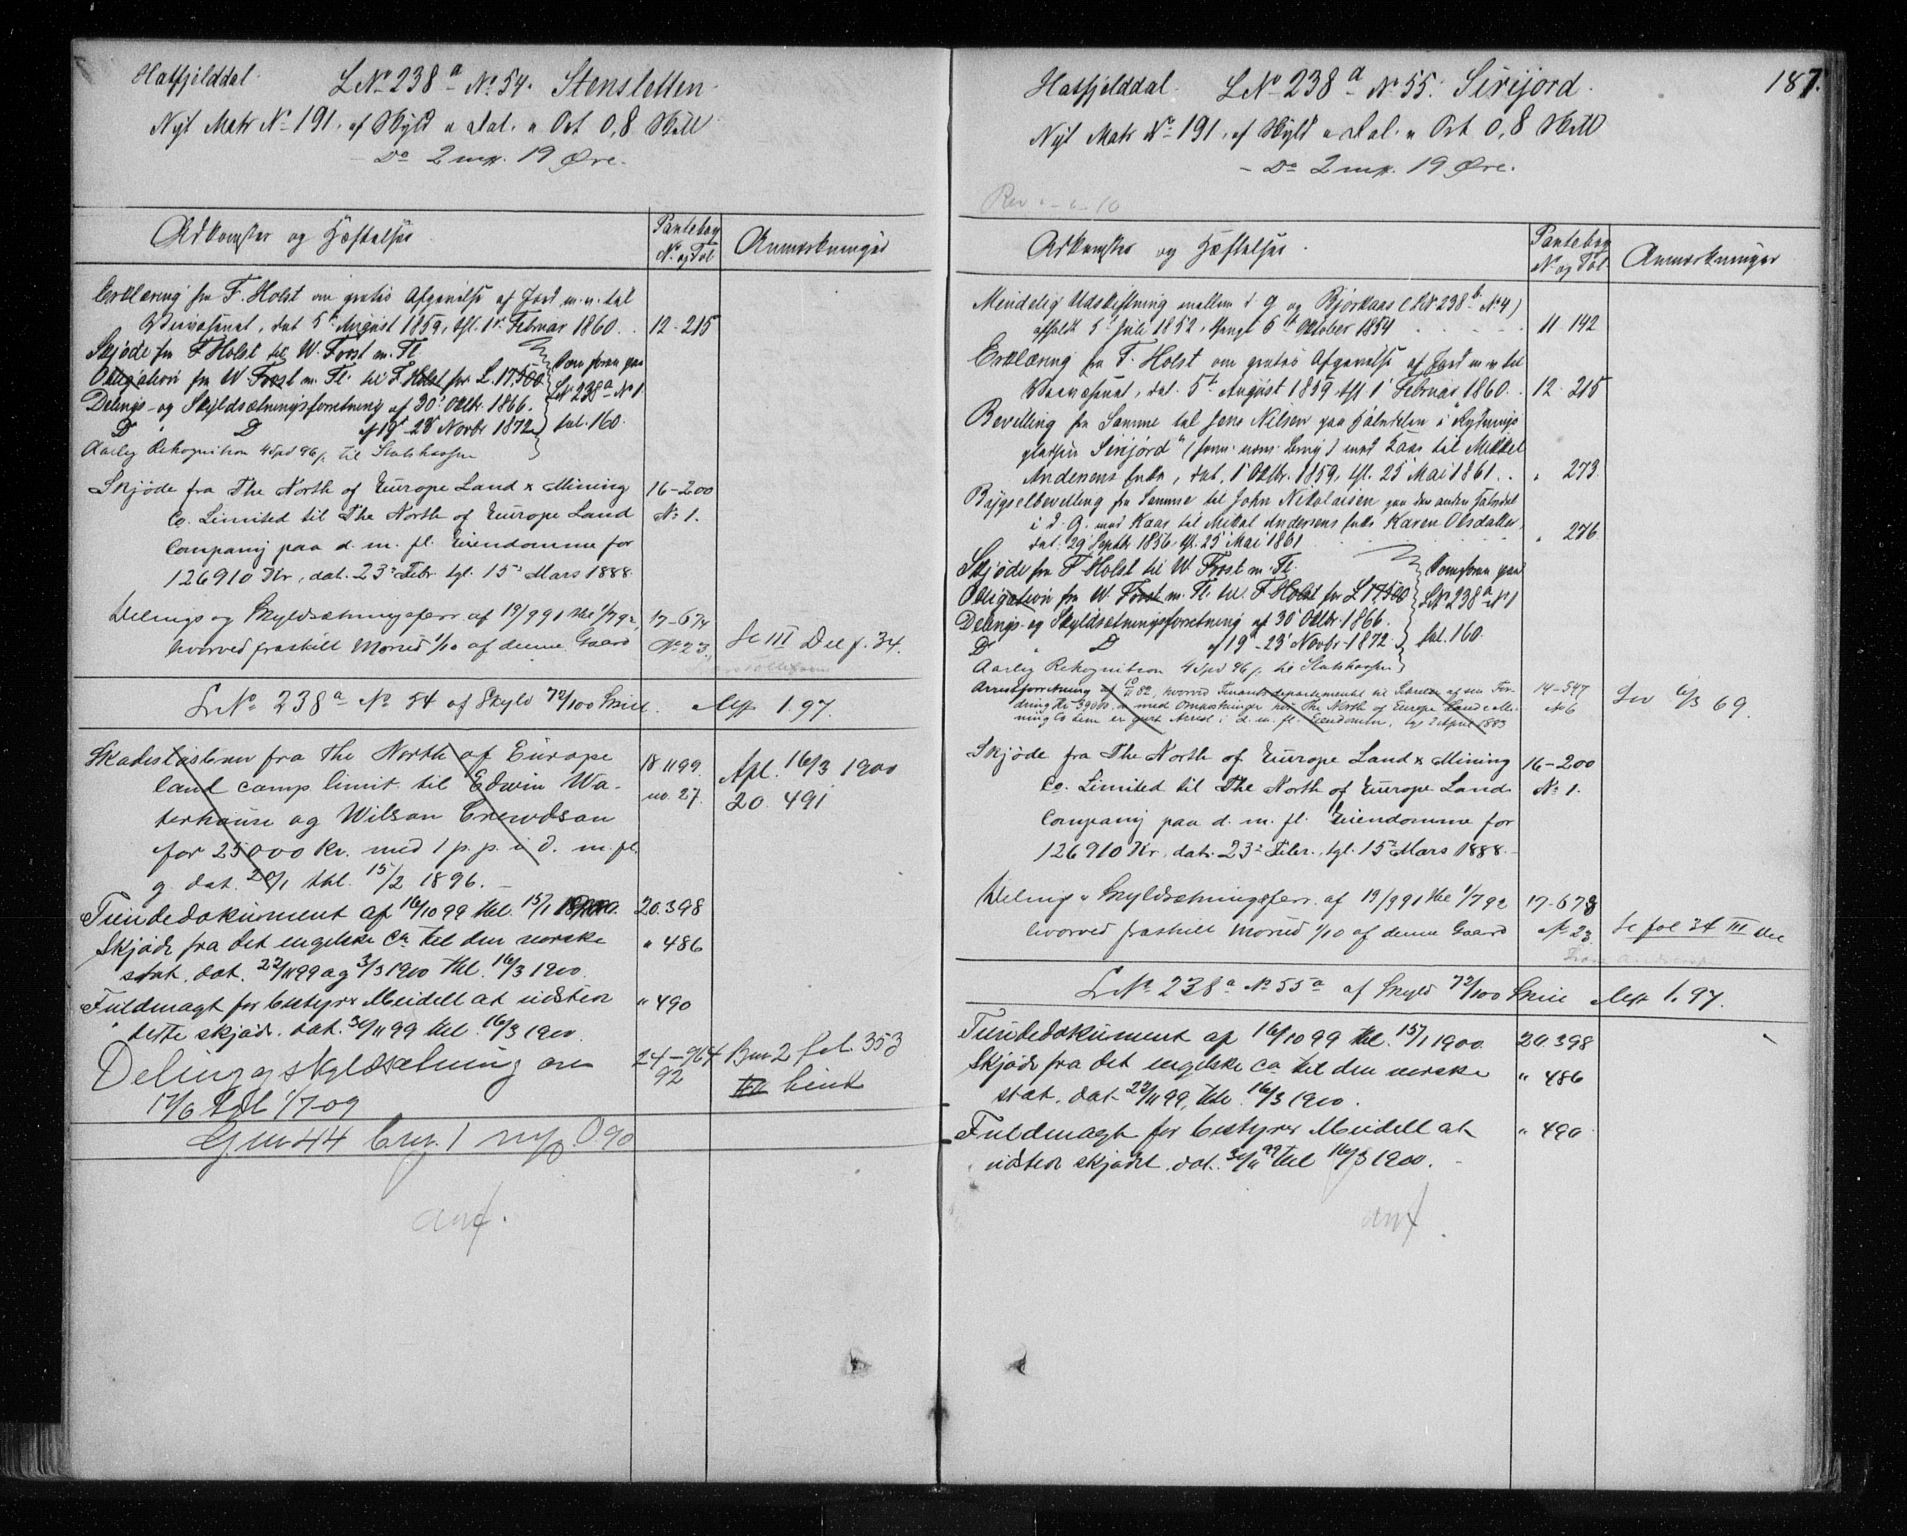 Hatfjelddal. LNo 238a No 54. Stensletten.
Nyt Matr No 191, af Skyld " Dal. " Ort 0,8 Skill
- Do 2 mrk. 19 Øre.
Adkomster og Hæftelser
Pantebog
No og Fol
Anmærkninger
Erklæring fra F. Holst om gratis Afgivelse af Jord m. v. til
Veivæsenet, dat 5te August 1859, tgl. 1ste Februar 1860. 12 - 215
Skjøde fra F Holst til W. Forst m. Fl.
Obligation fra W Forst m. Fl. til F Holst for L. 17,500
Delings- og Skyldsætningsforretning af 30' Oktbr. 1866.
D D af 19'-23' Novbr 1872
Kom foran paa
LNo 238a No 1
fol. 160.
Aarlig Rekognition 4 Spd 96 s. til Statskassen
Skjøde fra The North of Europe Land & Mining 16-200
Co. Limited til The North of Europe Land No 1.
Company paa d. m. fl. Eiendomme for
126910 Kr, dat. 23' Febr. tgl. 15' Mars 1888.
Delings og Skyldsætningsforr. af 19/9 91 thl 1/7 92, 17-674
hvorved fraskilt Morud 1/10 af denne Gaard No 23. Se III Del f. 34.
LNo 238a No 54 af Skyld 72/100 Skill. 1.97.
Skadesløsbrev fra The North of Europe 18 1199.
land comp limit til Edwin Wa- no. 27.
Apl. 16/3 1900
20. 491
terhouse og Wilson Crewdson
for 25000 Kr. med 1 p. p. i d. m. fl.
g. dat. 20/1 thl. 15/2 1896.
Tiendedokument af 16/10 99 thl. 15/1 1900. 20.398
Skjøde fra det engelske Co til den norske " 486
stat. dat. 22/11 99 og 3/3 1900 thl. 16/3 1900.
Fuldmagt for bestyrer Meidell at udsten " 490
dette skjøde. dat. 30/11 99 thl. 16/3 1900.
Deling og skyldsætning om 24-964 Bno 2 fol. 353
17/6 tgl 1/7-09 92
Gno 44 bno. 1 090
anf.
187.
Hatfjelddal. LNo 238a No 55. Sirijord.
Nyt Matr No 191, af Skyld " Dal. " Ort 0,8 Skill
- Do 2 mrk. 19 Øre.
Adkomster og Hæftelser.
Pantebog
No og Fol
Anmærkninger
Mindelig Udskiftning mellem d. G og Bjørkaas (LNo 238b No 4)
afholdt 5' Juli 1852, thingl 6te Oktober 1854 11 142
Erklæring fra F. Holst om gratis Afgivelse af Jord m v til
Veivæsenet, dat. 5te August 1859 tgl 1' Februar 1860. 12 - 215
Bevilling fra Samme til Jens Nilsen paa Halvdelen i "Rydnings
pladsen Sirijord" med Kaar til Mikkel
Andersens Enke, dat. 1' Oktbr. 1859, tgl. 25' Mai 1861. " 273.
Bygselbevilling fra Samme til John Nikolaisen paa den anden Halvdel
i d. G. med Kaar til Mikal Andersens Enke Karen Olsdatter,
dat. 29 Septbr 1856. tgl. 25' Mai 1861 " 276
Skjøde fra F Holst til W. Forst m. Fl.
Obligation fra W. Forst m. Fl. til F Holst for L 17,500
Delings- og Skyldsætningsforretning af 30' Oktbr. 1866.
D D af 19'-23' Novbr. 1872
Kom foran paa
LNo 238a No 1
fol. 160.
Aarlig Rekognition 4 Spd 96 s. til Statskassen
Arrestforretning af 10/11 82, hvorved Finantsdepartementet til Sikkerhed af sin For- 14-547
dring Kr 3900. med Omkostninger hos The North of Europe Land & Mi- No 6
ning Co tem er gjort Arrest i d. m. fl. Eiendomme, tgl 2 April 1883
Skjøde fra The North of Europe Land & Mining 16-200
Co. Limited til The North of Europe Land No 1.
Company paa d. m. fl. Eiendomme for
126910 Kr, dat. 23' Febr. tgl. 15' Mars 1888.
Deling & Skyldsætningsforr. af 19/9 91 thl 1/7 92 17-678
hvorved fraskilt Morud 1/10 af denne Gaard No 23. Se fol 34 III Del
LNo 238a No 55a af Skyld 72/100 Skill 1.97.
Tiendedokument af 16/10 99 thl. 15/1 1900. 20.398
Skjøde fra det engelske Co til den norske " 486
stat. dat 22/11 99, thl. 16/3 1900.
Fuldmagt for bestyrer Meidell at " 490
udsten skjødet. dat. 30/11 99 thl 16/3 1900.
anf